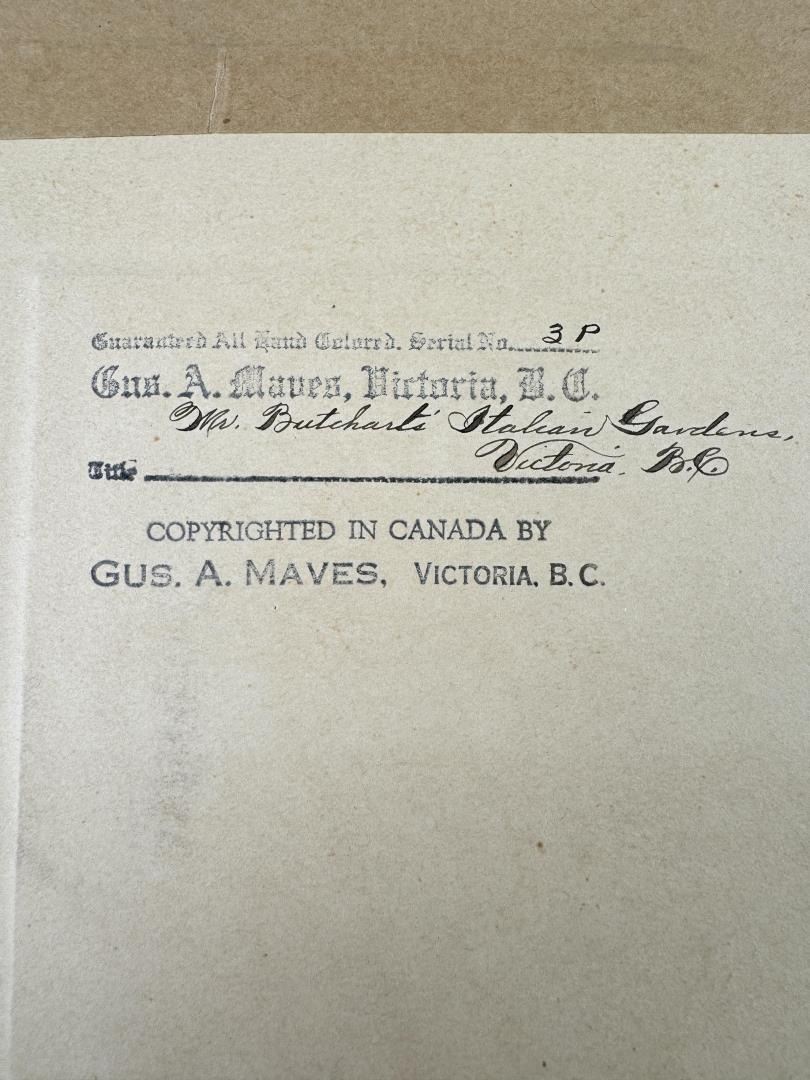 Guaranteed All Hand Colored. Serial No. 3 P
Gus. A. Maves, Victoria, B.C.
Mr. Butcharts' Italian Gardens,
Victoria. B.C
Title
COPYRIGHTED IN CANADA BY
GUS. A. MAVES, VICTORIA, B.C.